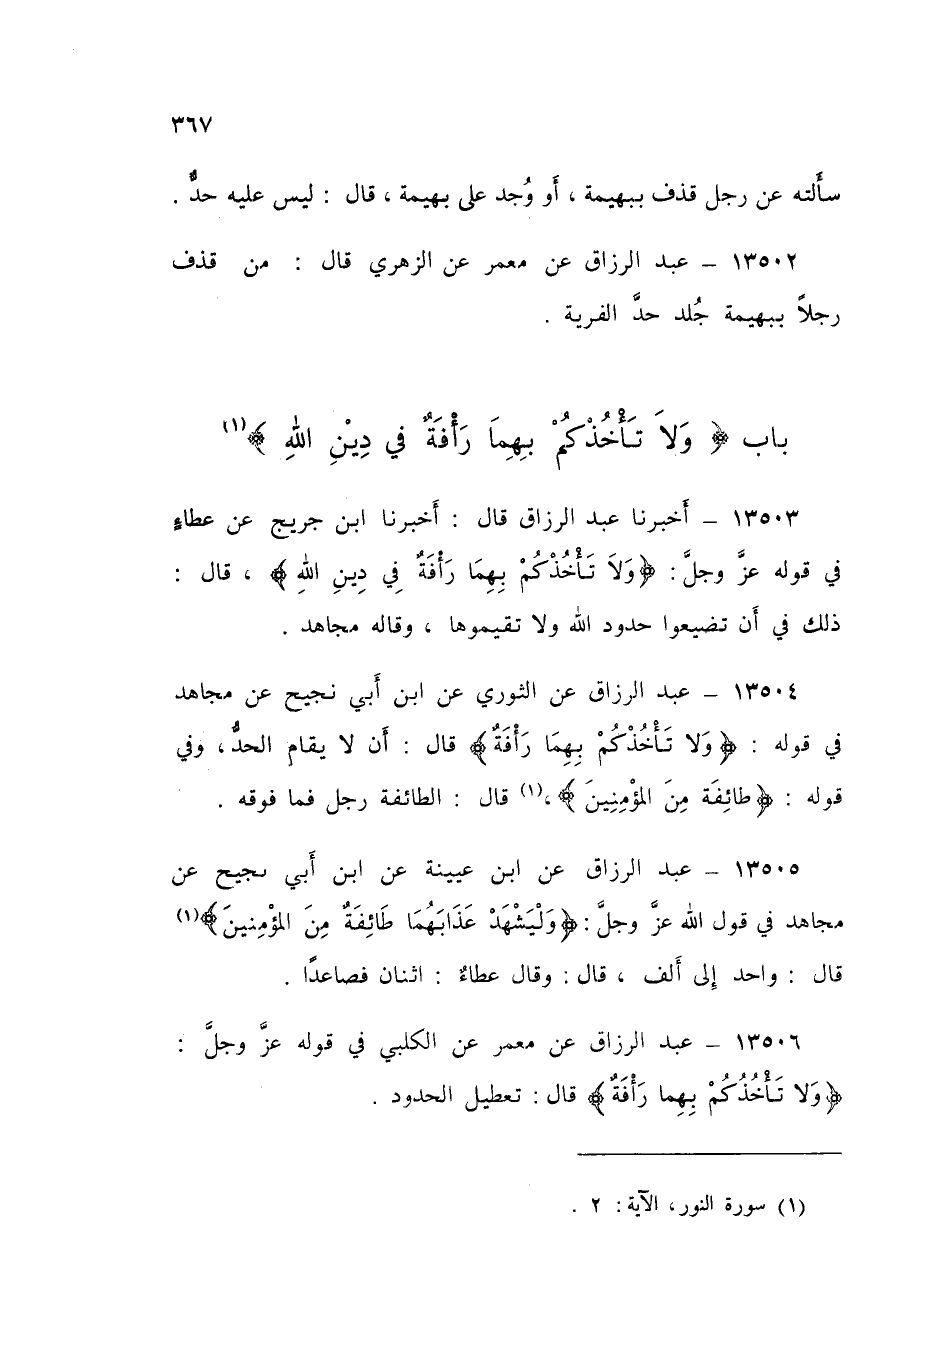 ٣٦٧
سأَلته عن رجل قذف ببهيمة ، أَو وُجد على بهيمة ، قال : ليس عليه حدٌّ .
١٣٥٠٢ – عبد الرزاق عن معمر عن الزهري قال : من قذف
رجلاً ببهيمة جُلد حدَّ الفرية .
باب ﴿ وَلاَ تَأْخُذْكُمْ بِهِمَا رَأْفَةٌ في دِيْنِ اللهِ ﴾(١)
١٣٥٠٣ – أَخبرنا عبد الرزاق قال : أَخبرنا ابن جريج عن عطاءٍ
في قوله عزَّ وجلَّ : ﴿وَلاَ تَأْخُذْكُمْ بِهِمَا رَأْفَةٌ فِي دِينِ اللهِ ﴾ ، قال :
ذلك في أَن تضيعوا حدود الله ولا تقيموها ، وقاله مجاهد .
١٣٥٠٤ – عبد الرزاق عن الثوري عن ابن أَبي نجيح عن مجاهد
في قوله : ﴿وَلا تَأْخُذْكُمْ بِهِمَا رَأْفَةٌ﴾ قال : أَن لا يقام الحدُّ ، وفي
قوله : ﴿طائِفَة مِنَ المُؤْمِنِينَ ﴾،(١) قال : الطائفة رجل فما فوقه .
١٣٥٠٥ – عبد الرزاق عن ابن عيينة عن ابن أَبي نجيح عن
مجاهد في قول الله عزَّ وجلَّ : ﴿وَلْيَشْهَدْ عَذَابَهُمَا طَائِفَةٌ مِنَ المُؤْمِنينَ﴾(١)
قال : واحد إلى أَلف ، قال : وقال عطاءٌ : اثنان فصاعدًا .
١٣٥٠٦ – عبد الرزاق عن معمر عن الكلبي في قوله عزَّ وجلَّ :
﴿وَلا تَأْخُذُكُمْ بِهِما رَأْفَةٌ﴾ قال : تعطيل الحدود .
(١) سورة النور، الآية : ٢ .